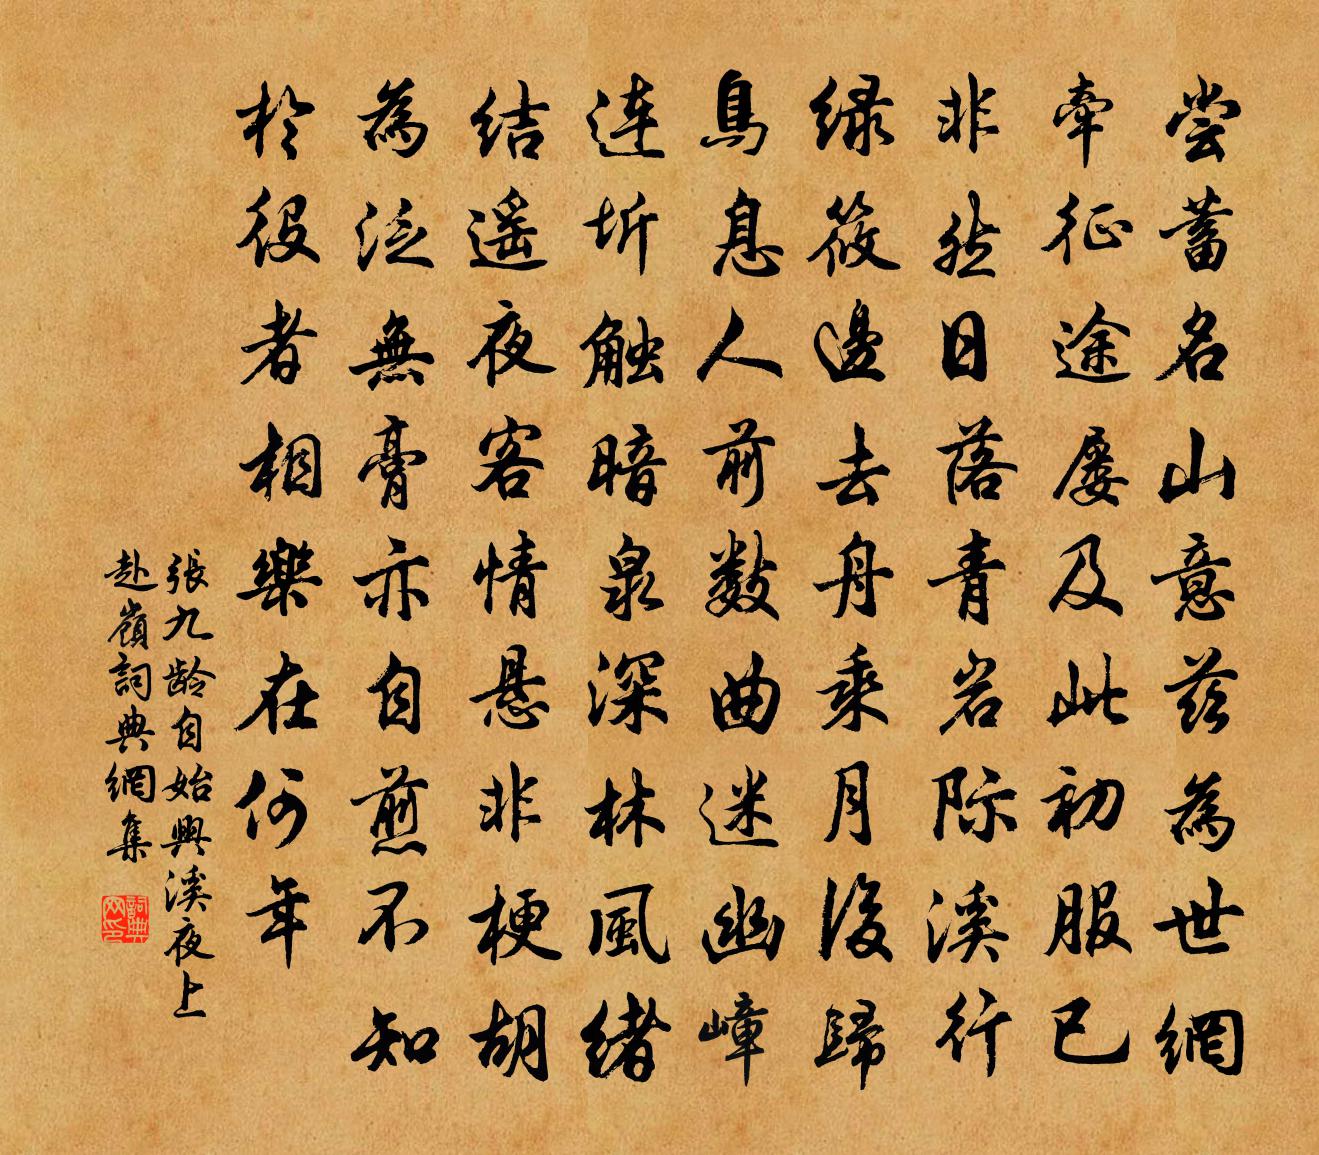 尝蓄名山意兹為世網
牵征途屡及此初服已
非然日落青岩际溪行
绿筱邊去舟乘月後歸
鳥息人前数曲迷幽嶂
連圻触暗泉深林風緒
结遥夜客情悬非梗胡
為泛無膏亦自煎不知
於役者相樂在何年
張九龄自始興溪夜上
赴嶺詞典網集
詞典网印